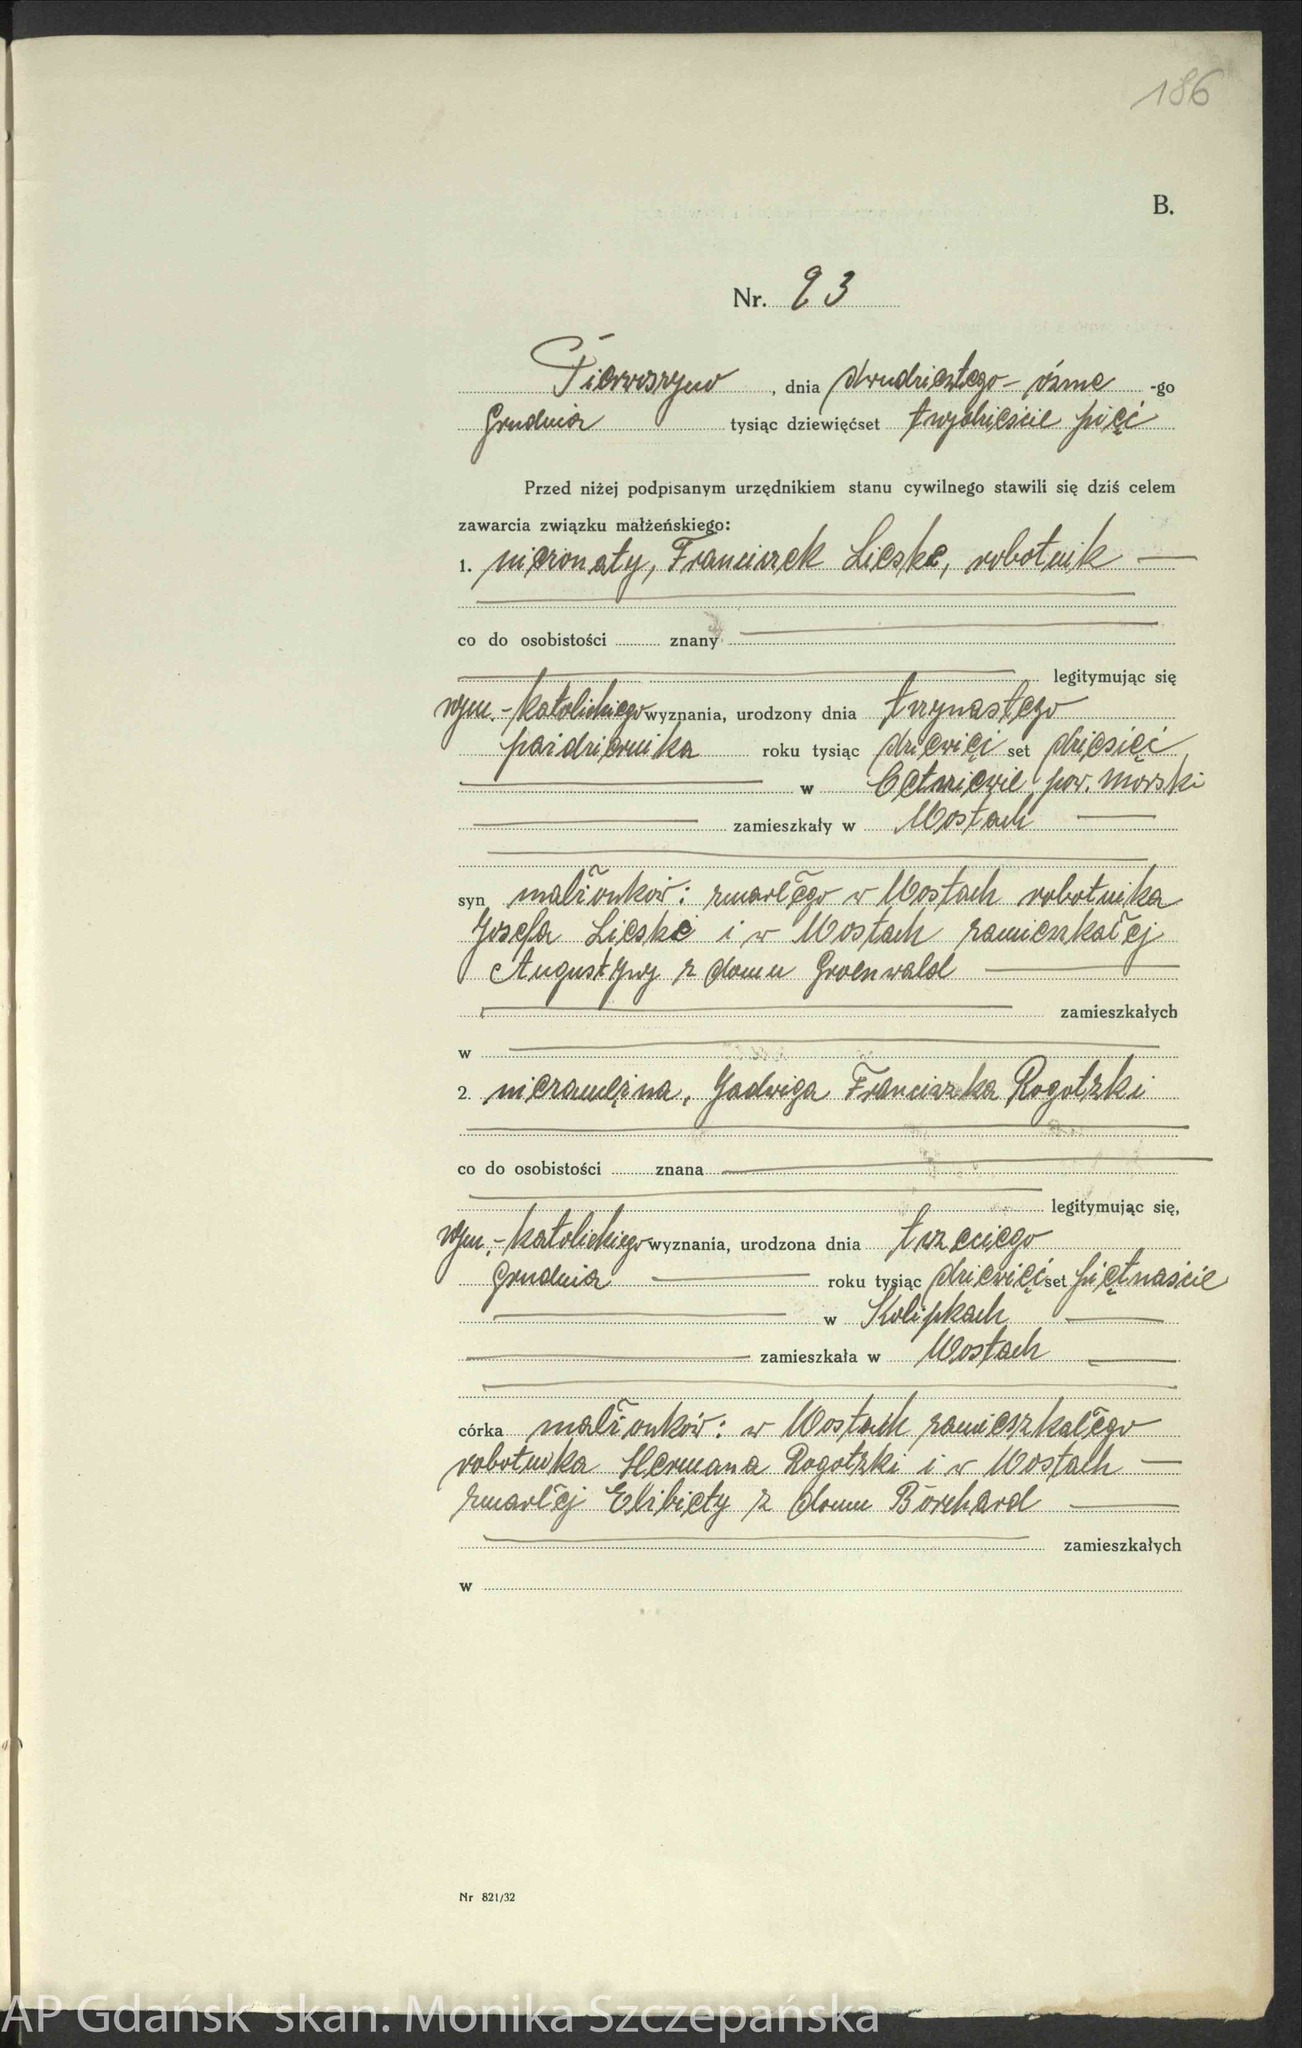 186
B.
Nr. 23
Pierwoszyno, dnia dwudziestego-ósme -go
Grudnia tysiąc dziewięćset trzydzieście pięć
Przed niżej podpisanym urzędnikiem stanu cywilnego stawili się dziś celem
zawarcia związku małżeńskiego:
1. nieżonaty, Franciszek Lieske, robotnik —
co do osobistości znany
legitymując się
rzym.-katolickiego wyznania, urodzony dnia trzynastego
października roku tysiąc dziewięć set dziesięć
w Cetniewie pow. Morski
zamieszkały w Mostach —
syn małżonków: zmarłego w Mostach robotnika
Josefa Lieske i w Mostach zamieszkałej
Augustyny z domu Groenwald —
zamieszkałych
w
2. niezamężna, Jadwiga Franciszka Rogotzki
co do osobistości znana
legitymując się,
rzym.-katolickiego wyznania, urodzona dnia trzeciego
Grudnia — roku tysiąc dziewięć set piętnaście
w Kolipkach —
zamieszkała w Mostach —
córka małżonków: w Mostach zamieszkałego
robotnika Hermana Rogotzki i w Mostach —
zmarłej Elżbiety z domu Borchard —
zamieszkałych
w
Nr 821/32
AP Gdańsk skan: Monika Szczepańska